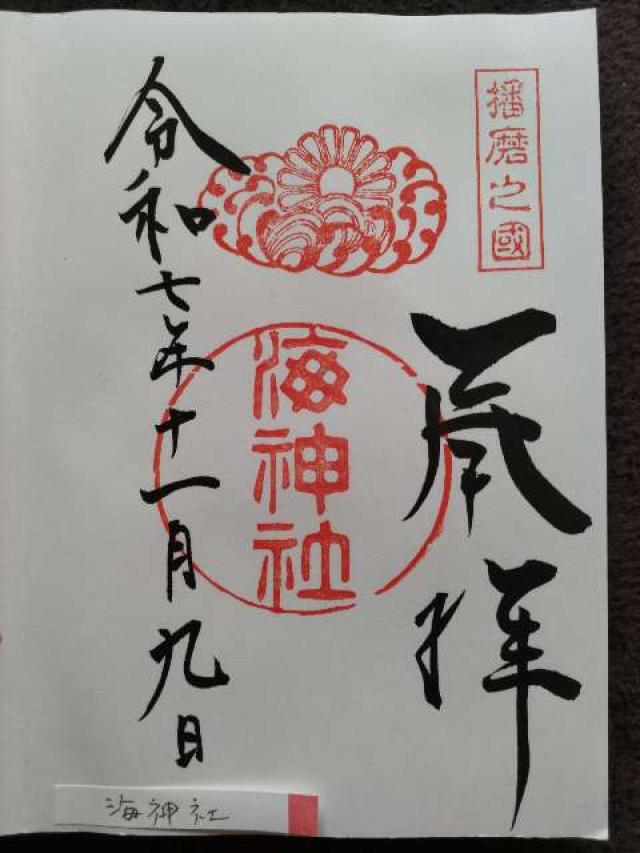 播磨之國
奉拝
海神社
令和七年十一月九日
海神社